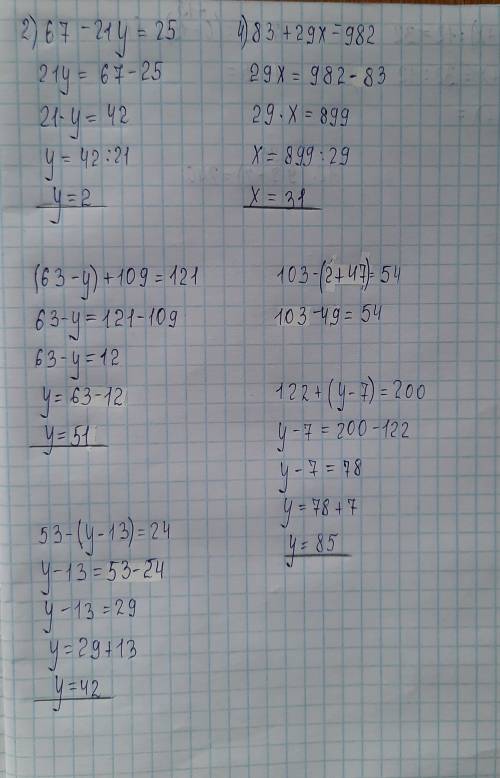 2) 67 - 21y = 25
21y = 67 - 25
21·y = 42
y = 42:21
y = 2
4) 83 + 29x = 982
29x = 982 - 83
29·x = 899
x = 899:29
x = 31
(63-y) + 109 = 121
63-y = 121-109
63-y = 12
y = 63-12
y = 51
103-(2+47) = 54
103-49 = 54
122+(y-7) = 200
y-7 = 200-122
y-7 = 78
y = 78+7
y = 85
53-(y-13) = 24
y-13 = 53-24
y-13 = 29
y = 29+13
y = 42